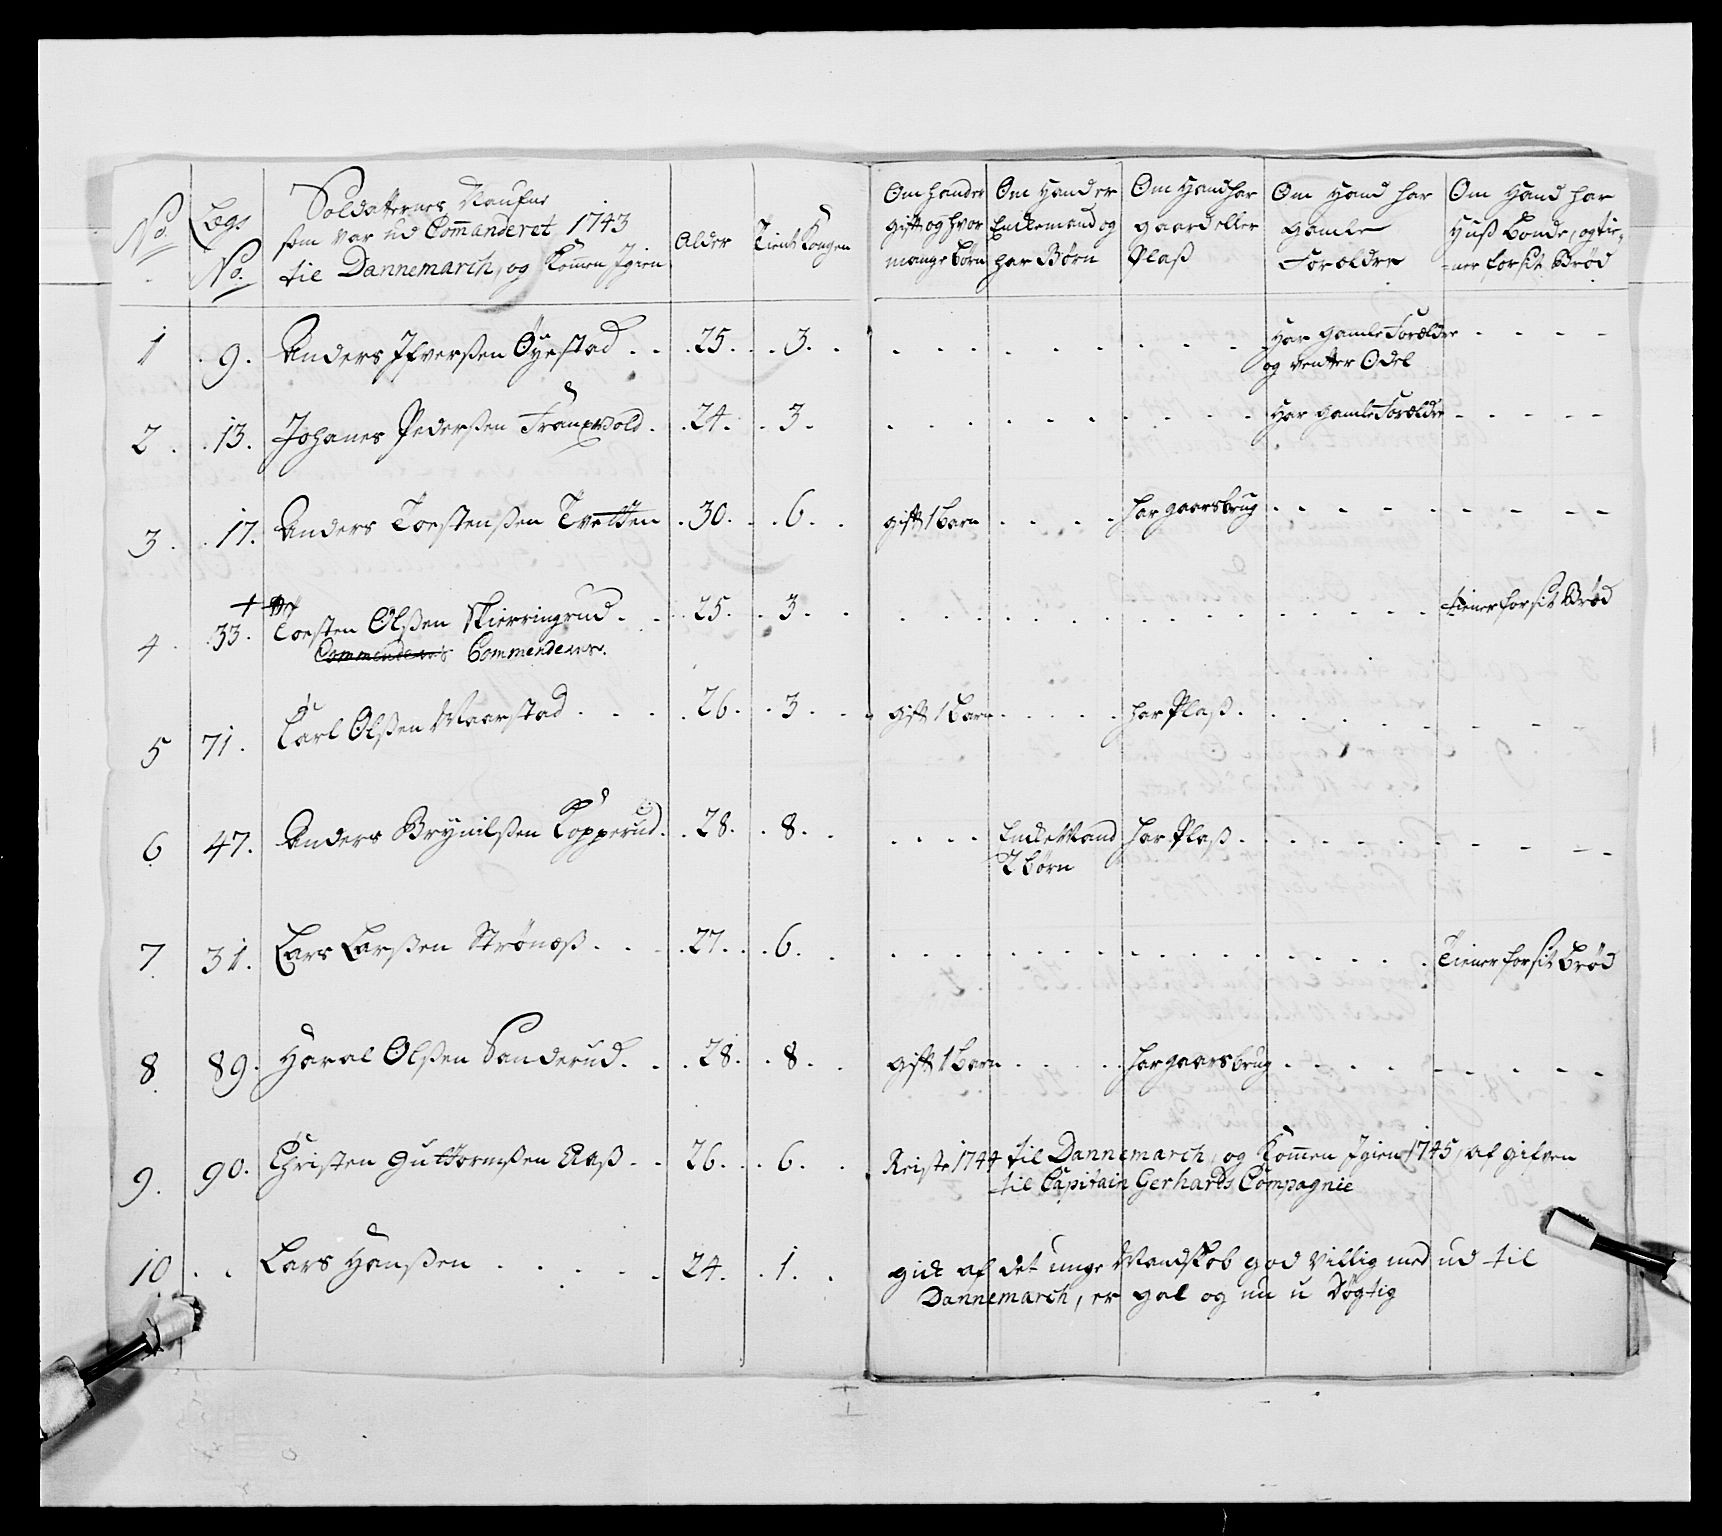 No. Legs No. Soldatternes Naufne som var ud Commanderet 1743 til Dannemarch, og Kommen Igien Alder Tient Kongen Om hand er gift og hvor mange børn Om Hand er Enckemand og har Børn Om Hand har gaard eller Plass Om Hand har gamle Forældre Om Hand har Huss bonde, og tie-ner for sit Brød
1 9. Anders Ifversen Öyestad . . 25. . 3. Har gamle Forældre
og venter Odel
2 . 13. Johanes Pedersen . 24. . 3. Har gamle Forældre
3 . 17. Anders Torstensen Tvetten . 30. . 6. gift 1 barn har gaarsbrug
4 . 33. Torsten Olsen Skierringrud . 25. . 3. tiener for sit Brød
Commenderes.
5 71. Carl Olsen Maarstad . . . 26. . 3. gift 1 barn har Plass.
6 47. Anders Brynilsen Kopperud . 28. . 8. Encke Mand har Plass.
2 børn
7 31. Lars Larsen Strönæss . . 27. . 6. Tiener for sit brød
8 89. Haral Olsen Sanderud . . 28. . 8. gift 1 barn har gaarsbrug
9. 90. Christen Guttormsen Aass . . 26. . 6. Reiste 1744 til Dannemarch, og Kommen Igien 1745, af gifven
til Capitain Gerhards Compagnie
10 . . Lars Hansen . . . 24. . 1. gick af det unge Mandskob god villig med ud til
Dannemarch, er gal og nu u døgtig